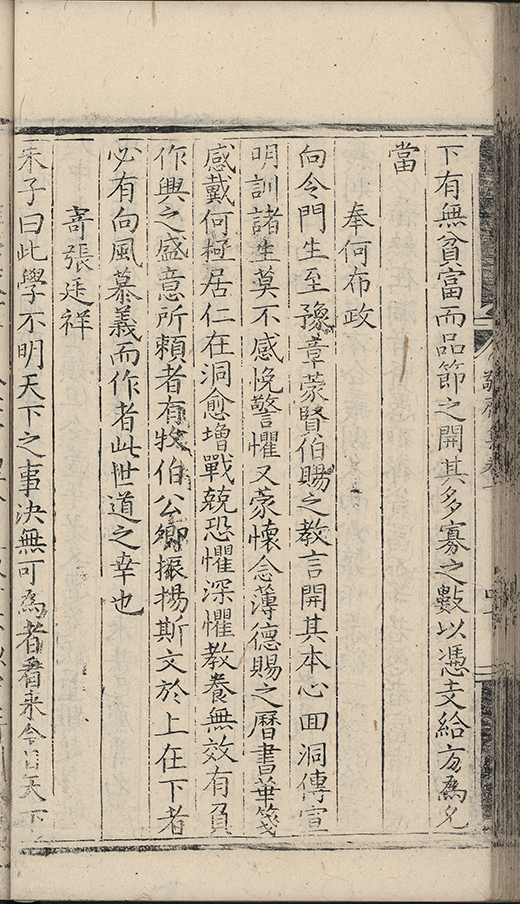 下有無貧富而品節之開其多寡之數以憑支給方為允
當
奉何布政
向令門生至豫章蒙賢伯賜之教言開其本心囬洞傳宣
明訓諸生莫不感悅警懼又蒙懷念薄德賜之曆書華箋
感戴何極居仁在洞愈增戰兢恐懼深懼教養無效有負
作興之盛意所賴者有牧伯公卿振揚斯文於上在下者
必有向風慕義而作者此世道之幸也
寄張廷祥
朱子曰此學不明天下之事決無可為者看来今日天下